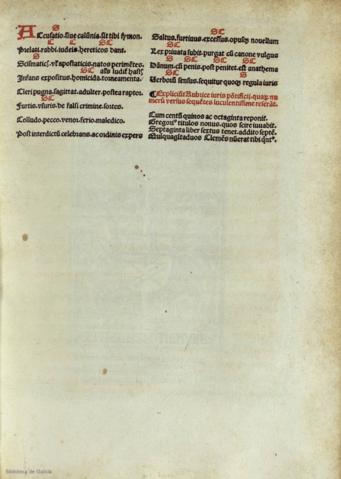 Accusatio. sine calũnia. sit tibi symon.
Prelati. rabbi. iudeis. hereticos dant.
Scismatic⁹. vt apostaticis. natos perimẽtes.
Infans expositus. homicida. torneamenta.
Cleri pugna. sagittat. adulter. postea raptor.
Furtis. vsuris. de falsi crimine. sortes.
Colludo. pecco. venor. ferio. maledico.
Post interdictũ celebrans. ac ordinis expers
SC
Saltus. furtiuus. excessus. opusq̃ nouellum
SC
Rex priuata subit. purgat cũ canone vulgus
SC SC SC
Dãnum. cũ penis. post penitet. est anathema
S SC
Verborũ sensus. sequitur quoq̃ regula iuris
Expliciũt Rubrice iuris põtificij. quaꝝ nu
merũ versus sequẽtes luculentissime referãt.
Cum centũ quinos ac octaginta reponit.
Gregori⁹ titulos nonus. quos scire iuuabit.
Septaginta liber sextus tenet. addito septẽ.
Quinquagĩtaduos Clemẽs nũerat tibi qnt⁹.
Biblioteca de Galicia